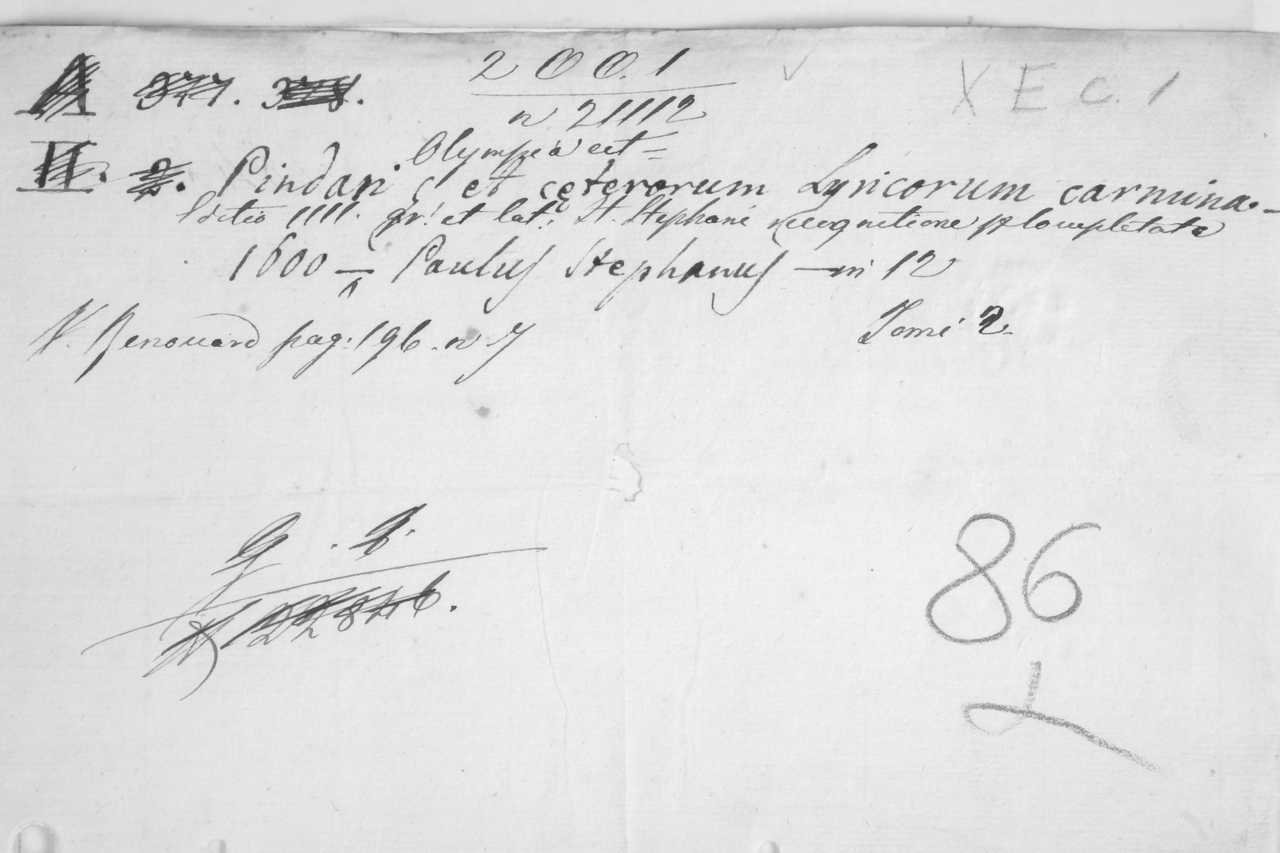 A 377. 378. 2 O O. 1 X E C. 1
n 21112
Olympia ect =
II. 2. Pindari et ceterorum Lyricorum carmina. —
Editio IIII. gr. et lat. H. Stephani recognitione locupletata
1600 — Paulus Stephanus — in 12
V. Renouard pag: 196. n 7 Tomi 2.
86